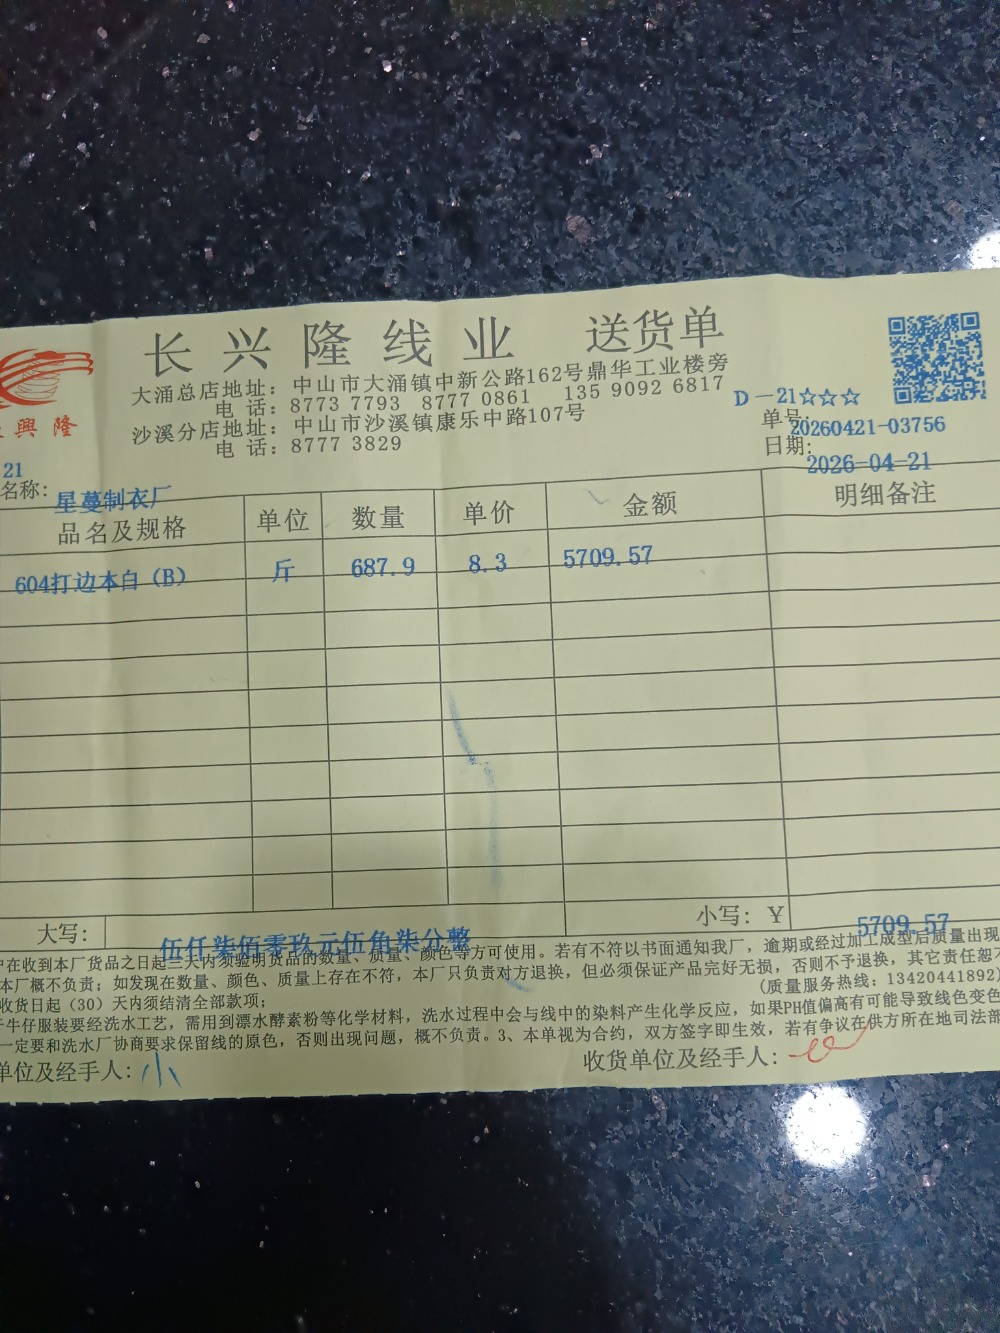 长兴隆线业 送货单
大涌总店地址：中山市大涌镇中新公路162号鼎华工业楼旁
电 话：8773 7793 8777 0861 135 9092 6817
沙溪分店地址：中山市沙溪镇康乐中路107号
电 话：8777 3829
興隆
D－21☆☆☆
单号：20260421-03756
日期：2026-04-21
21
名称：星蔓制衣厂
品名及规格 单位 数量 单价 金额 明细备注
604打边本白（B） 斤 687.9 8.3 5709.57
大写：伍仟柒佰零玖元伍角柒分整 小写：￥5709.57
在收到本厂货品之日起三天内须验明货品的数量、质量、颜色等方可使用。若有不符以书面通知我厂，逾期或经过加工成型后质量出现
本厂概不负责；如发现在数量、颜色、质量上存在不符，本厂只负责对方退换，但必须保证产品完好无损，否则不予退换，其它责任恕不
收货日起（30）天内须结清全部款项； （质量服务热线：13420441892）
牛仔服装要经洗水工艺，需用到漂水酵素粉等化学材料，洗水过程中会与线中的染料产生化学反应，如果PH值偏高有可能导致线色变色
一定要和洗水厂协商要求保留线的原色，否则出现问题，概不负责。3、本单视为合约，双方签字即生效，若有争议在供方所在地司法部
单位及经手人：小 收货单位及经手人：